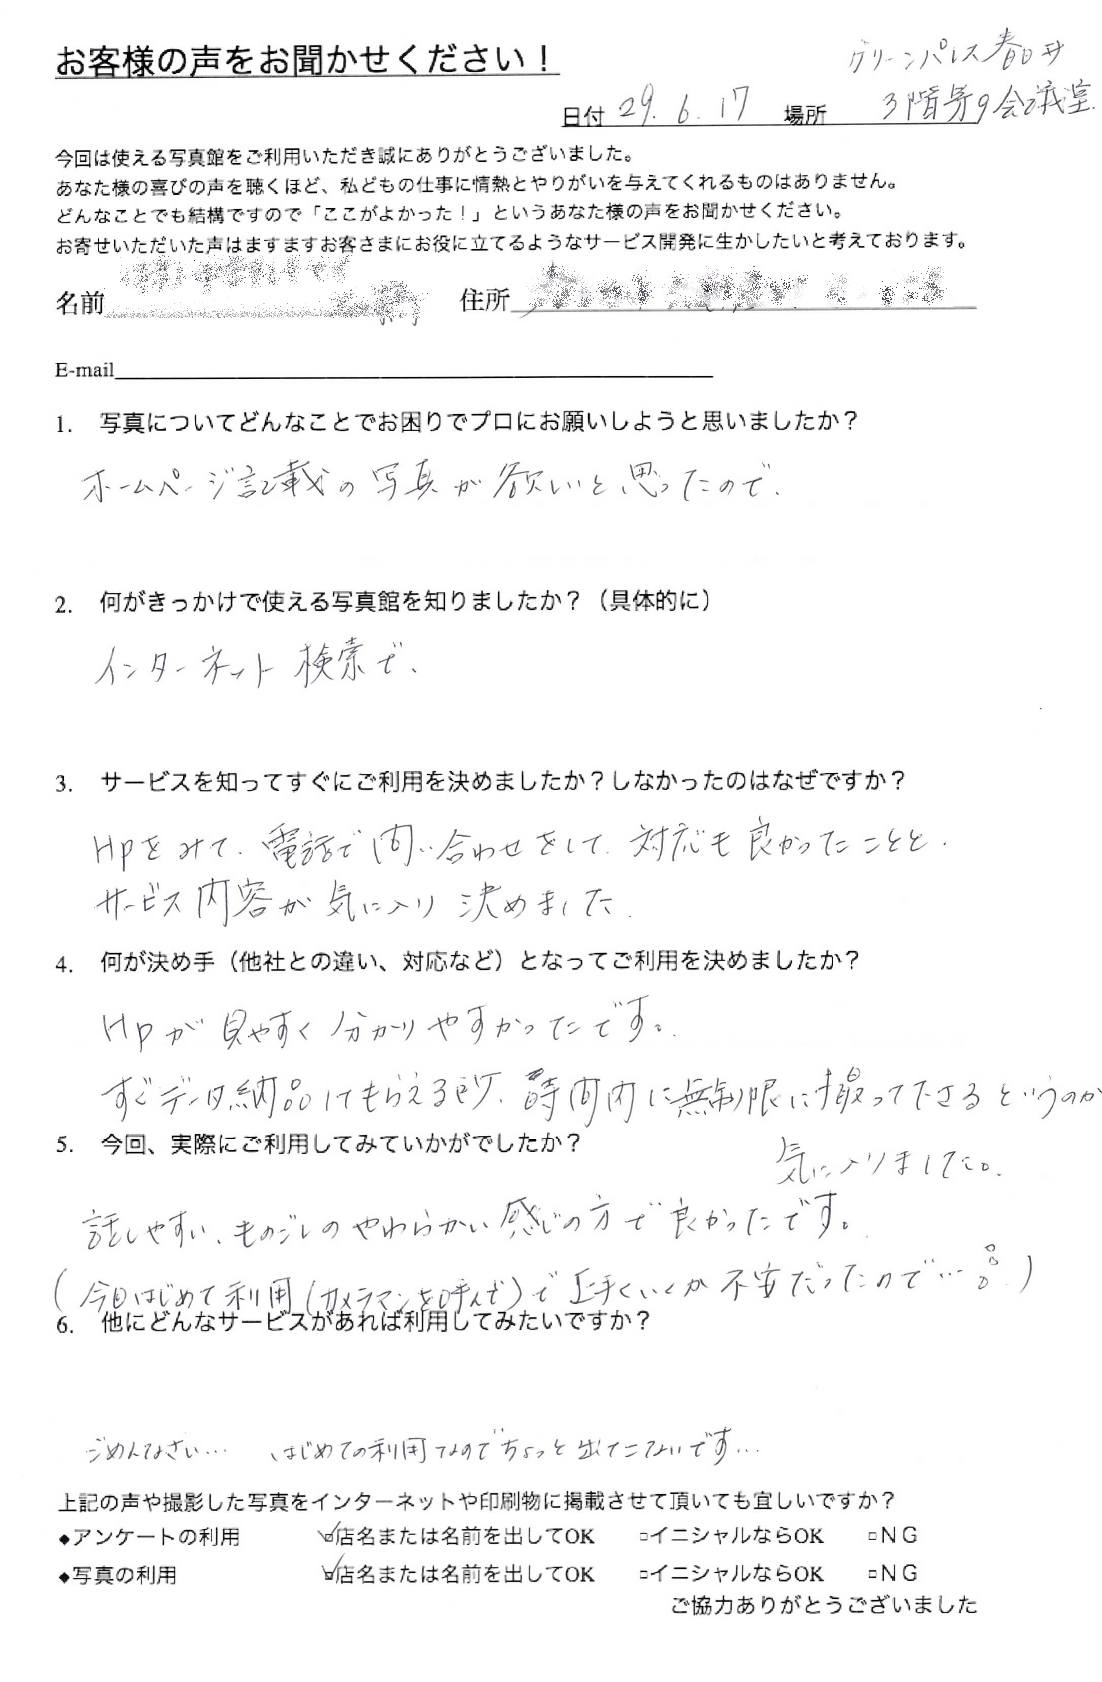 お客様の声をお聞かせください！
グリーンパレス春日井
日付 29.6.17 場所 3階第9会議室.
今回は使える写真館をご利用いただき誠にありがとうございました。
あなた様の喜びの声を聴くほど、私どもの仕事に情熱とやりがいを与えてくれるものはありません。
どんなことでも結構ですので「ここがよかった！」というあなた様の声をお聞かせください。
お寄せいただいた声はますますお客さまにお役に立てるようなサービス開発に生かしたいと考えております。
名前 住所
E-mail
1. 写真についてどんなことでお困りでプロにお願いしようと思いましたか？
ホームページ記載の写真が欲いと思ったので.
2. 何がきっかけで使える写真館を知りましたか？（具体的に）
インターネット検索で、
3. サービスを知ってすぐにご利用を決めましたか？しなかったのはなぜですか？
Hpをみて、電話で問い合わせをして、対応も良かったことと、
サービス内容が気に入り決めました.
4. 何が決め手（他社との違い、対応など）となってご利用を決めましたか？
Hpが見やすく分かりやすかったです。
すぐデータ納品してもらえる所、時間内に無制限に撮って下さるというのが
気に入りました。
5. 今回、実際にご利用してみていかがでしたか？
話しやすい、ものごしのやわらかい感じの方で良かったです。
(今回はじめて利用(カメラマンを呼んで)で上手くいくか不安だったので…。)
6. 他にどんなサービスがあれば利用してみたいですか？
ごめんなさい… はじめての利用なのでちょっと出てこないです…
上記の声や撮影した写真をインターネットや印刷物に掲載させて頂いても宜しいですか？
◆アンケートの利用 ☑店名または名前を出してOK □イニシャルならOK □ＮＧ
◆写真の利用 ☑店名または名前を出してOK □イニシャルならOK □ＮＧ
ご協力ありがとうございました